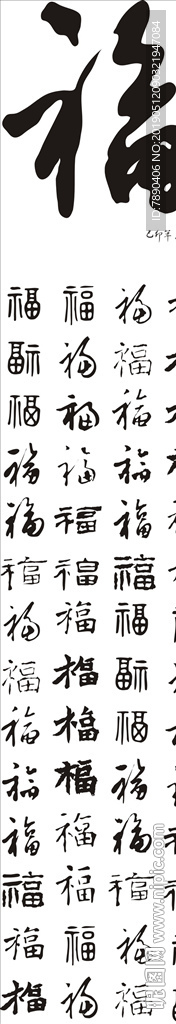 福
己卯羊
福 福 福
福 福 福
福 福 福
福 福 福
福 福 福
福 福 福
福 福 福
福 福 福
福 福 福
福 福 福
福 福 福
福 福 福
福 福 福
福 福 福
ID:7890406 NO:20190512090321947084
昵图网 www.nipic.com